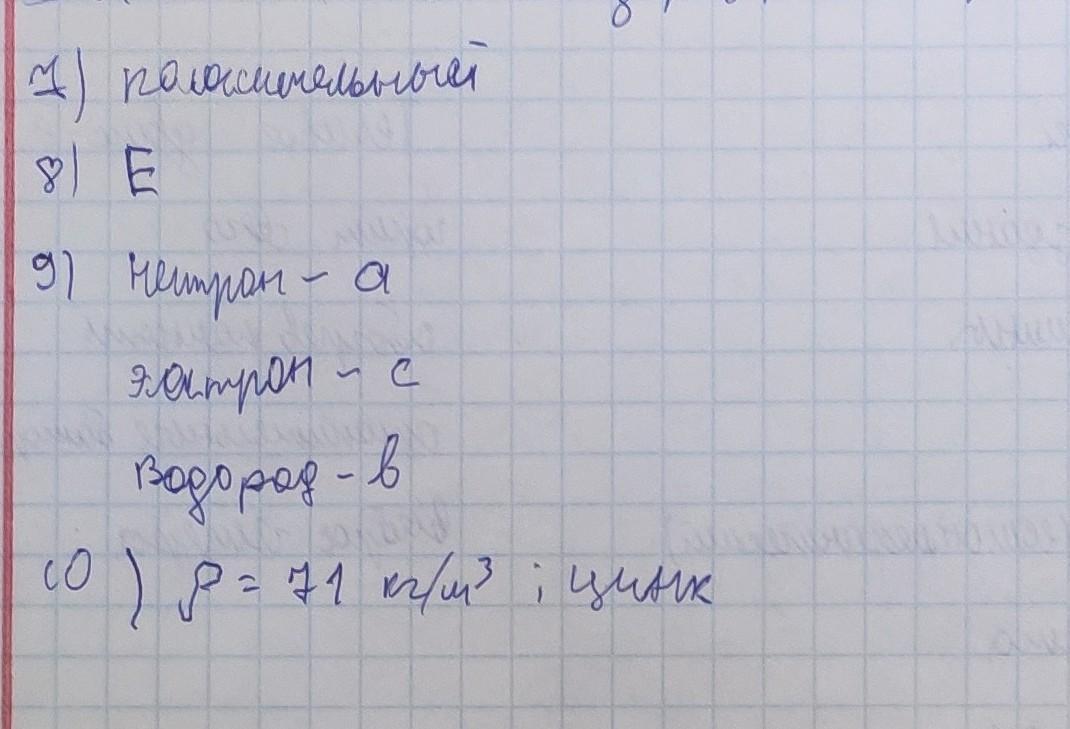 7) положительный
8) E
9) Нейтрон - a
электрон - c
Водород - в
10) ρ = 71 кг/м³ ; цинк